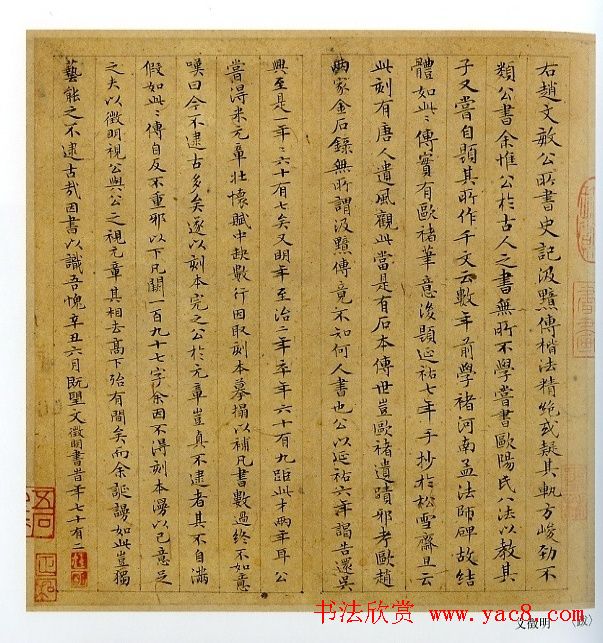 右趙文敏公所書史記汲黯傳楷法精絶或疑其軌方峻勁不
類公書余惟公於古人之書無所不學嘗書歐陽氏八法以教其
子又嘗自題其所作千文云數年前學褚河南孟法師碑故結
體如此此傳實有歐褚筆意後題延祐七年手抄於松雪齋且云
此刻有唐人遺風觀此當是有石本傳世豈歐褚遺蹟邪考歐趙
兩家金石錄無所謂汲黯傳竟不知何人書也公以延祐六年謁告還吳
興至是一年年六十有七矣又明年至治二年卒年六十有九距此才兩年耳公
嘗得米元章壯懷賦中缺數行因取刻本摹搨以補凡書數過終不如意
嘆曰今不逮古多矣遂以刻本完之公於元章豈真不逮者其不自滿
假如此此傳自反不重邪以下凡闕一百九十七字余因不得刻本漫以己意足
之夫以徵明視公與公之視元章其相去高下殆有間矣而余誕謾如此豈獨
藝能之不逮古哉因書以識吾愧辛丑六月既望文徵明書昔年七十有二
书法欣赏 www.yac8.com
文徵明 （跋）